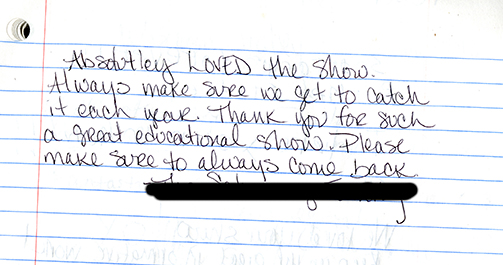 Absolutley LOVED the show.
Always make sure we get to catch
it each year. Thank you for such
a great educational show. Please
make sure to always come back